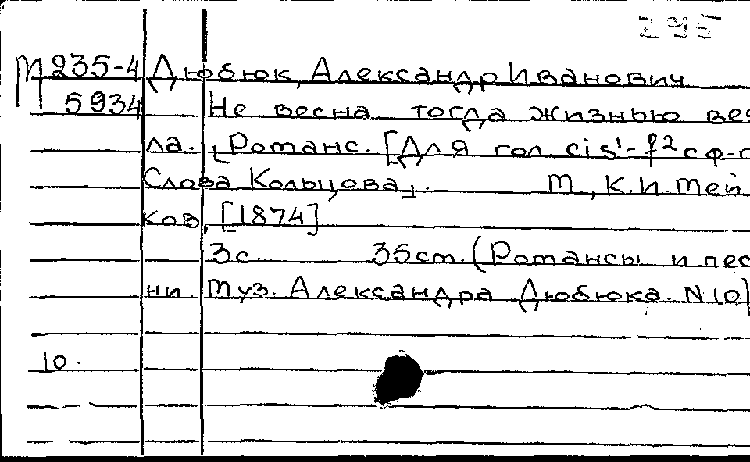 295
М 235-4 Дюбюк, Александр Иванович
5934 Не весна тогда жизнью вея
ла. [Романс. [Для гол cis¹-f² с ф-п
Слова Кольцова]. М., К. И. Мей
ков, [1874]
3с 35cm. (Романсы и пес
ни Муз. Александра Дюбюка. N 10)
10.